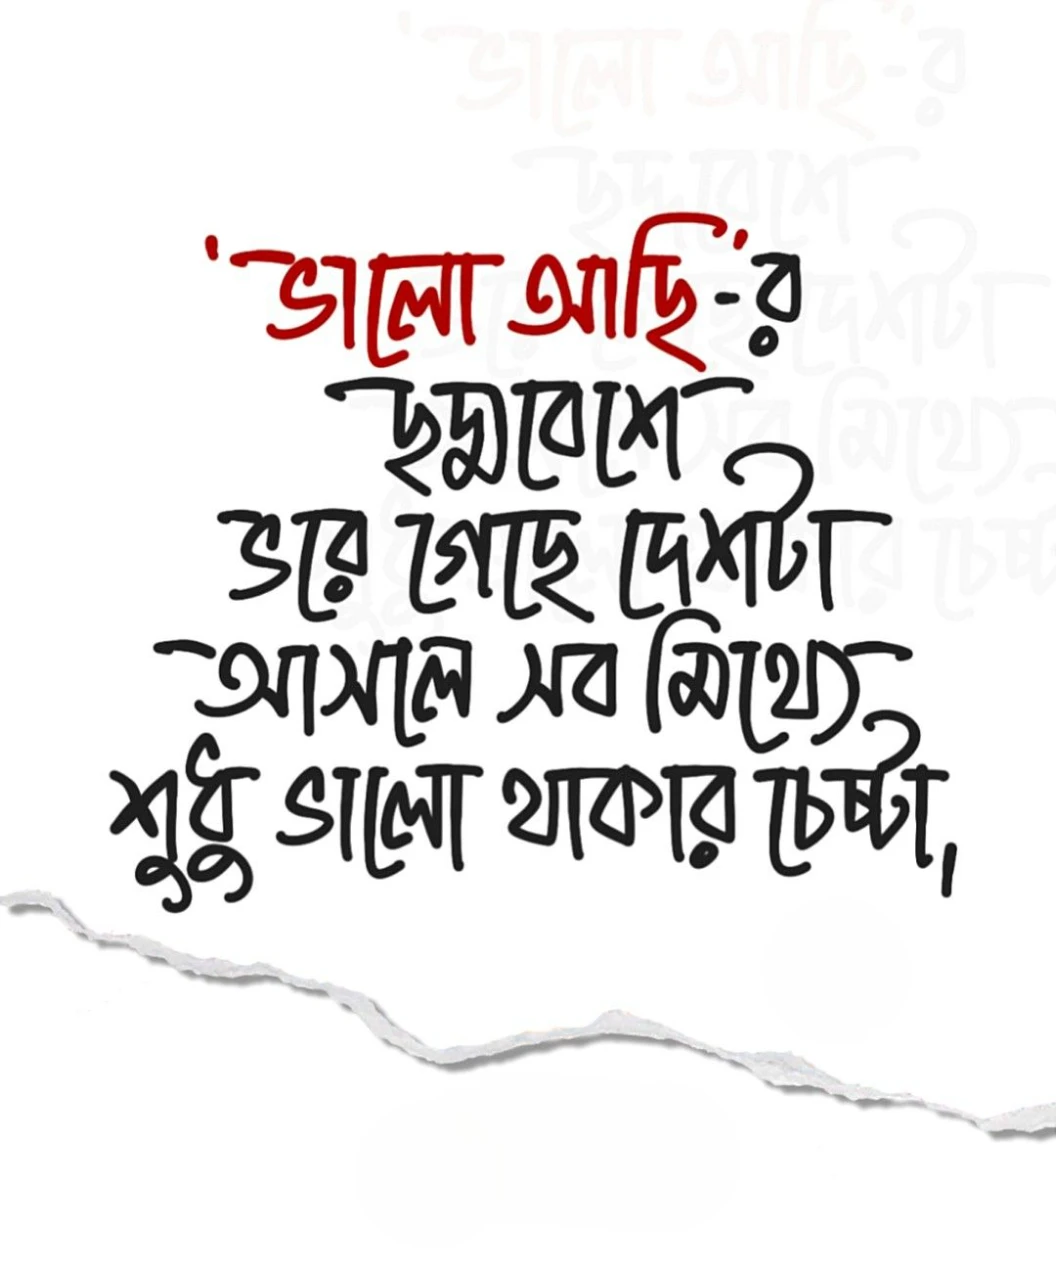 'ভালো আছি'-র
ছদ্মবেশে
ভরে গেছে দেশটা
আসলে সব মিথ্যে
শুধু ভালো থাকার চেষ্টা,